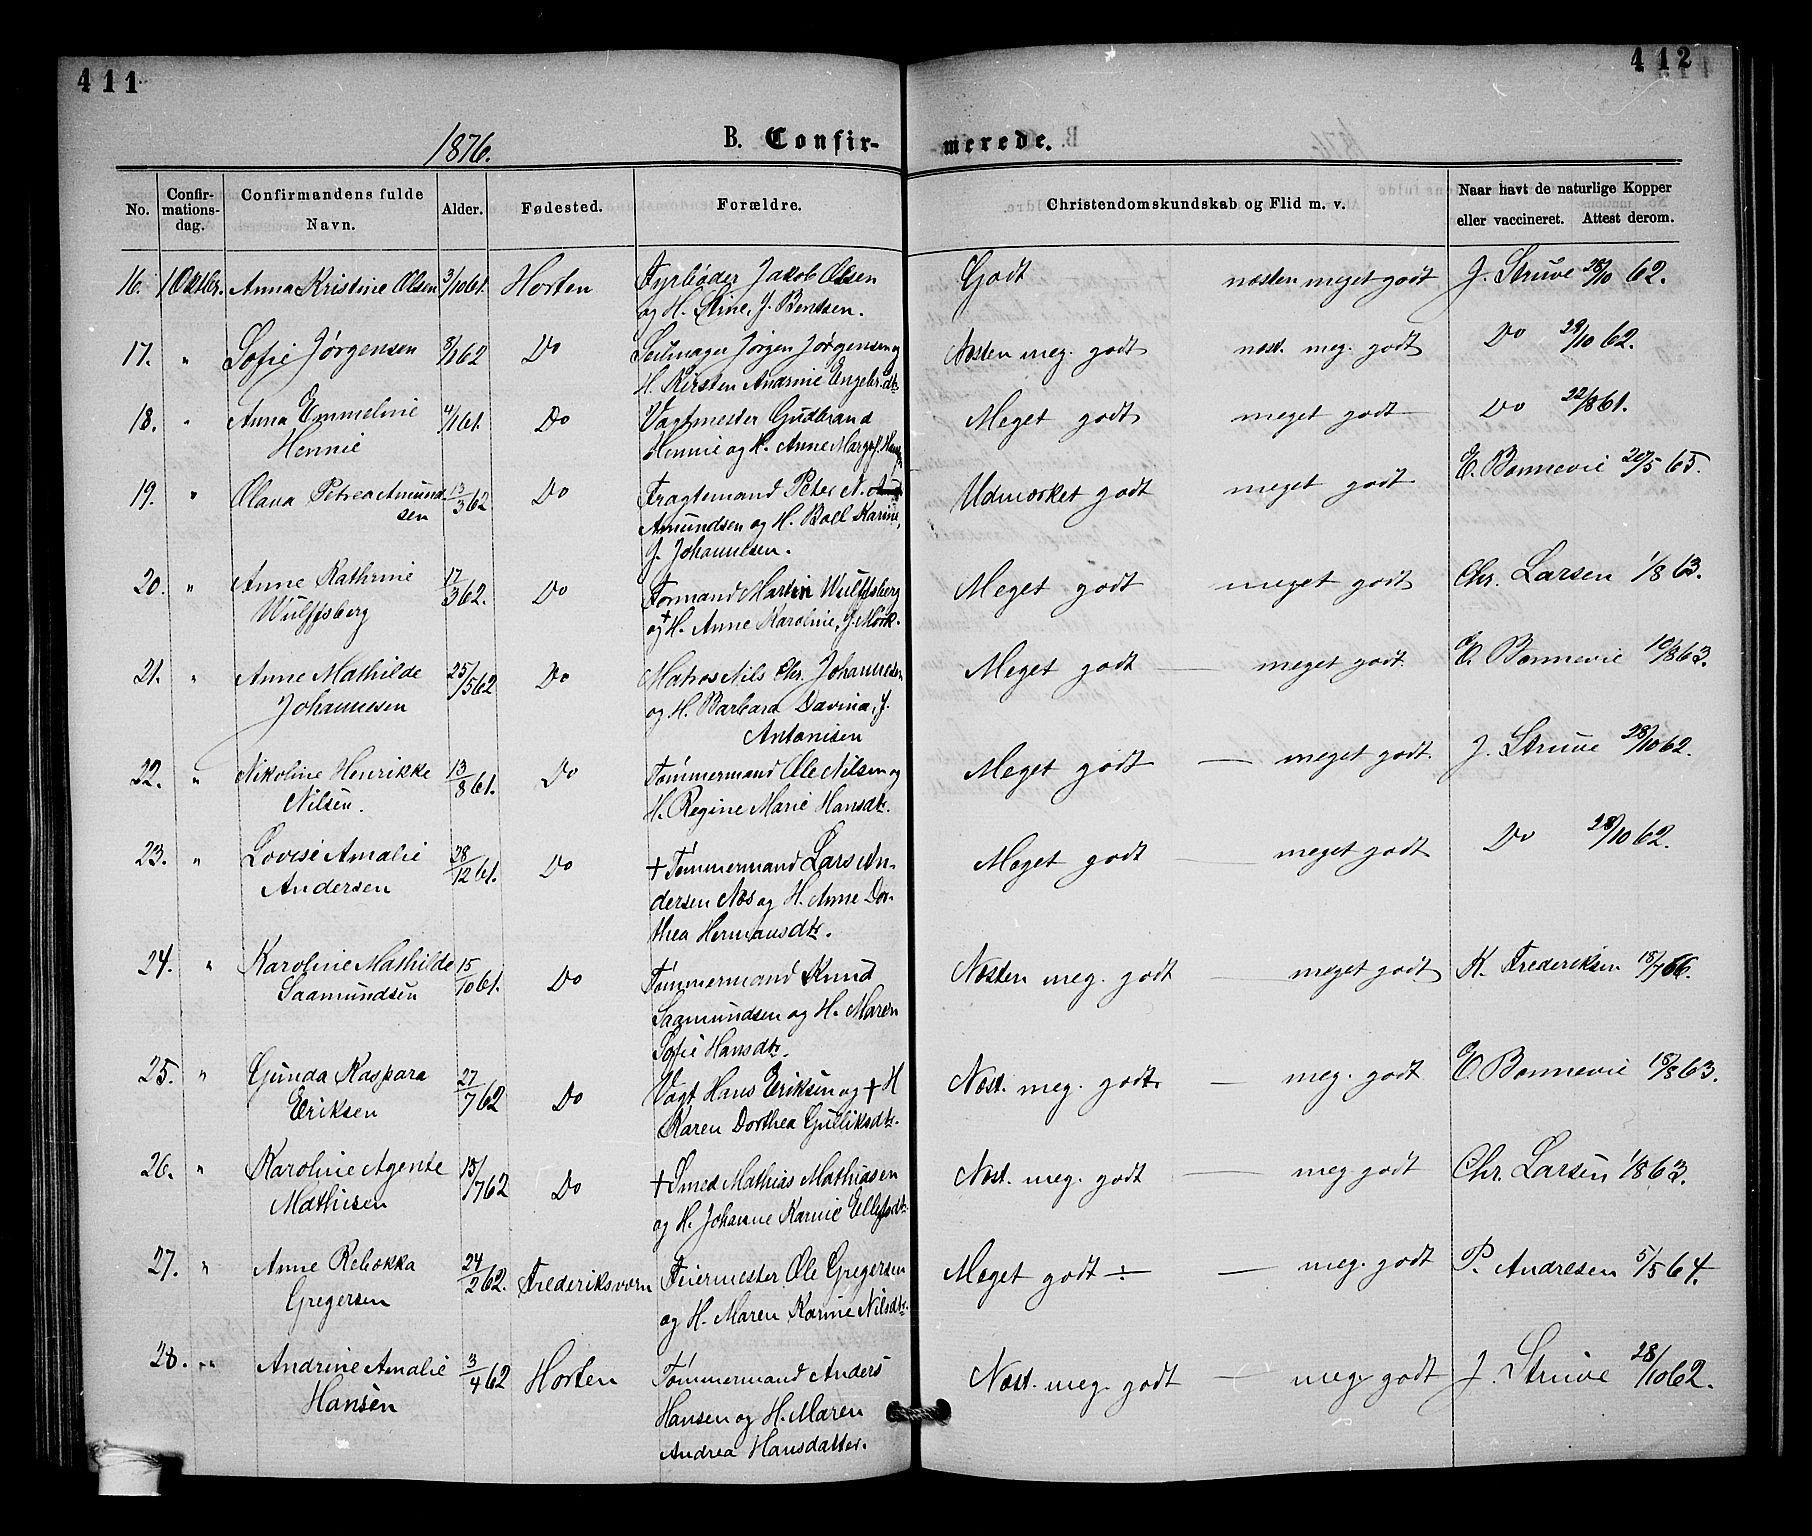 411
412
1876.
B. Confir-
merede.
No.
Confir-
mations-
dag.
Confirmandens fulde
Navn.
Alder.
Fødested.
Forældre.
Christendomskundskab og Flid m. v.
Naar havt de naturlige Kopper
eller vaccineret. Attest derom.
16. 1 Oktbr. Anna Kristine Olsen 3/10 61. Horten Fyrbøder Jakob Olsen Godt næsten meget godt J. Struve 28/10 62.
og H. Stine, J. Bentsen.
17. " Sofie Jørgensen 8/1 62 Do Seilmager Jørgen Jørgensen og Næsten meg. godt næst. meg. godt Do 28/10 62.
H. Kirsten Andrine Engebr.dtr
18. " Anna Emmeline 4/1 61. Do Vagtmester Gudbrand Meget godt meget godt Do 22/8 61.
Hennie Hennie og H. Anne Margr. J.
19. " Olava Petrea Amund- 13/3 62 Do Fragtemand Peter N. Udmærket godt meget godt E. Bonnevie 20/5 65.
sen Amundsen og H. Boel Karine,
J. Johannesen.
20. " Anne Kathrine 17/3 62. Do Formand Martin Wulffsberg Meget godt meget godt Chr. Larsen 1/8 63.
Wulffsberg og + H. Anne Karoline, J. Mørk.
21. " Anne Mathilde 25/5 62 Do Matros Nils Chr. Johannesen Meget godt — meget godt E. Bonnevie 10/8 63.
Johannesen og H. Barbara Davina, J.
Antonisen
22. " Nikoline Henrikke 13/8 61. Do Tømmermand Ole Nilsen og Meget godt — meget godt J. Struve 28/10 62.
Nilsen. H. Regine Marie Hansdtr
23. " Lovise Amalie 28/12 61. Do + Tømmermand Lars An- Meget godt — meget godt Do 28/10 62.
Andersen dersen Næs og H. Anne Dor-
thea Hermansdtr.
24. " Karoline Mathilde 15/10 61. Do Tømmermand Knud Næsten meg. godt — meget godt K. Frederiksen 18/7 66.
Saamundsen Saamundsen og H. Maren
Sofie Hansdtr.
25. " Gunda Kaspara 27/7 62 Do Vagt Hans Eriksen og + H Næst. meg. godt — meg. godt E. Bonnevie 18/8 63.
Eriksen Karen Dorthea Gulliksdtr.
26. " Karoline Agente 15/7 62 Do + Smed Mathias Mathiasen Næst. meg. godt — meg godt Chr. Larsen 1/8 63.
Mathisen og H. Johanne Karine Ellefsdtr
27. " Anne Rebekka 24/2 62. Frederiksværn Feiermester Ole Gregersen Meget godt ÷ — meg. godt P. Andresen 5/5 64.
Gregersen og H. Maren Karine Nilsdtr
28. " Andrine Amalie 3/4 62 Horten Tømmermand Anders Næst. meg. godt — meg. godt J. Struve 28/10 62.
Hansen Hansen og H. Maren
Andrea Hansdatter.